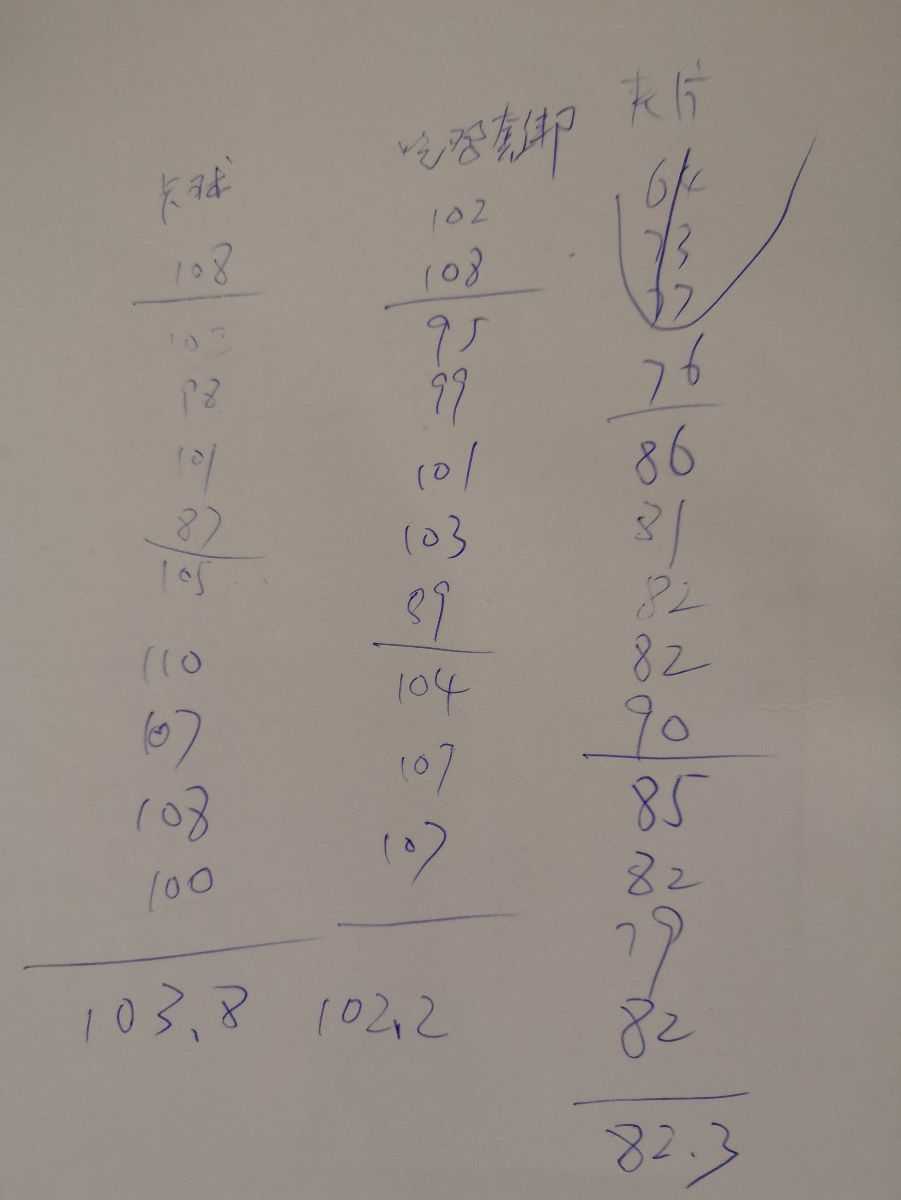 卡球
108
103
98
101
87
105
110
107
108
100
103.8
102
108
95
99
101
103
89
104
107
107
102.2
夹片
64
73
77
76
86
81
82
82
90
85
82
79
82
82.3